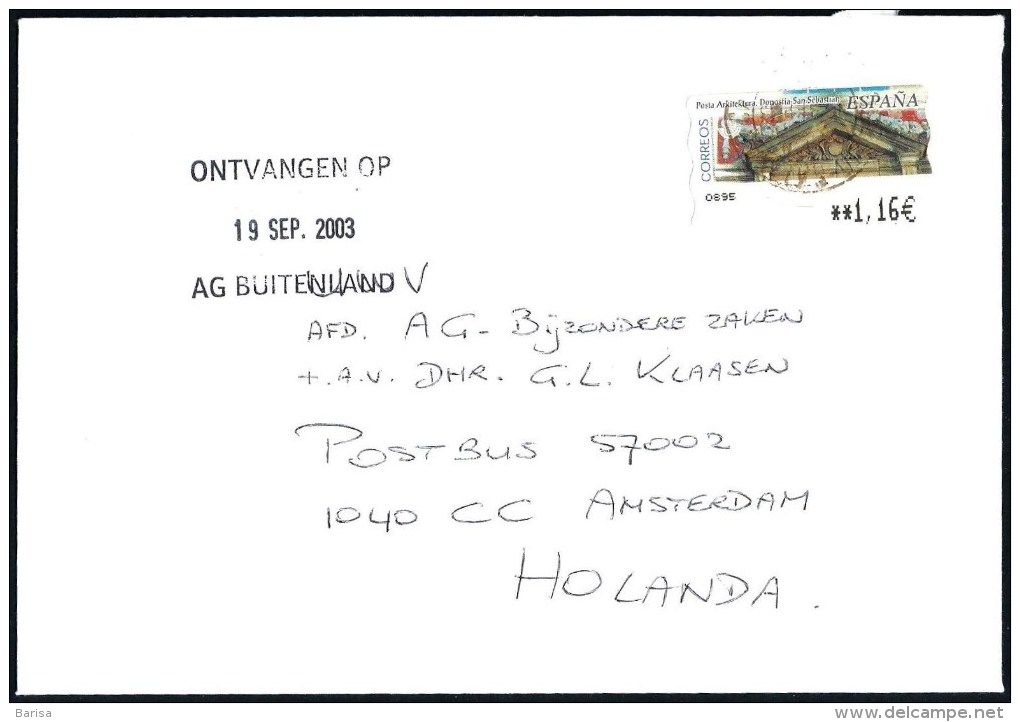 Posta Arkitektura. Donostia-San Sebastián ESPAÑA
CORREOS
0895
**1,16€
ONTVANGEN OP
19 SEP. 2003
AG BUITENLAND
AFD. AG- BIJZONDERE ZAKEN
t.A.V. DHR. G.L. KLAASEN
POSTBUS 57002
1040 CC AMSTERDAM
HOLANDA.
Barisa
delcampe.net